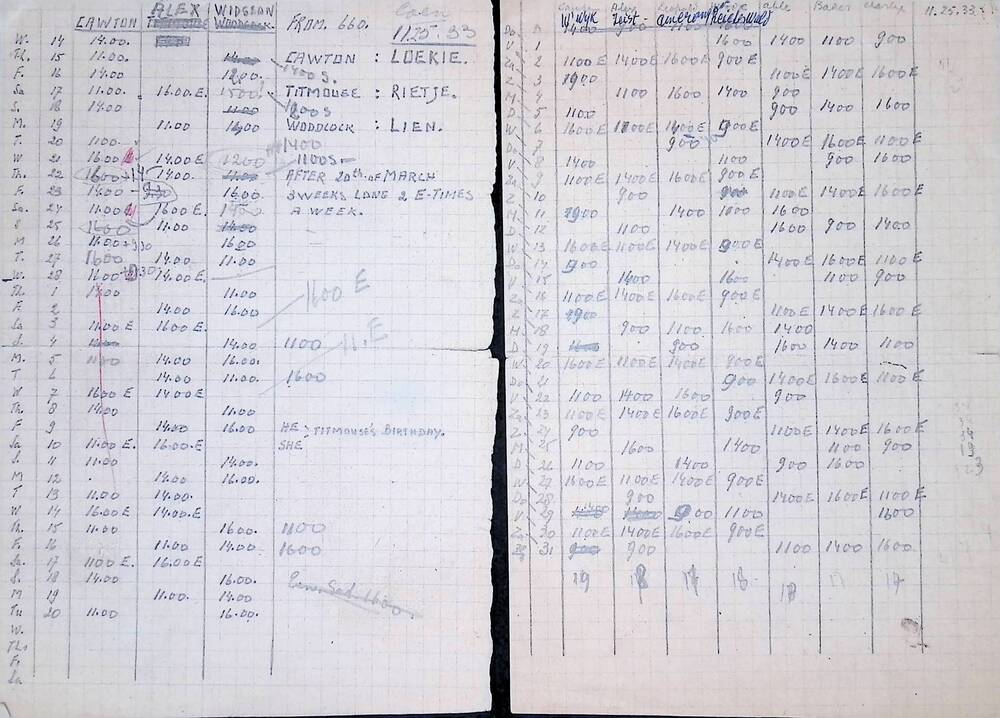 ALEX WIDGEON Coen
CAWTON TITMOUSE WOODCOCK FROM. 660. 11.25.33
W. 14 14.00.
Th. 15 11.00. 14.00 CAWTON : LOEKIE.
F. 16 14.00 1200. 1400 S.
Sa 17 11.00. 16.00.E. 1500 TITMOUSE : RIETJE.
S. 18 14.00 11.00 1800 S
M. 19 11.00 16.00 WOODCOCK : LIEN.
T. 20 11.00. 1400
W 21 16.00 14.00 E 1200 1100 S
Th. 22 1600 + 14 14.00. 11.00 AFTER 20th. OF MARCH
F. 23 14.00 16.00. 3 WEEKS LONG 2 E-TIMES
Sa. 24 11.00 16.00 E. 1400 A WEEK.
S 25 1600 11.00 14.00
M 26 11.00 + 9.30 16.00
T. 27 1600 14.00 11.00
W. 28 11.00 14.00 E.
Th. 1 14.00 11.00 1600 E
F. 2 14.00 16.00
Sa 3 11.00 E 16.00 E. 11.E
S. 4 14.00 1100
M. 5 11.00 14.00 16.00.
T 6 14.00 11.00. 1600
W 7 16.00 E 14.00 E
Th. 8 14.00 11.00
F 9 14.00 16.00 HE > TITMOUSE'S BIRTHDAY.
Sa 10 11.00 E 16.00.E SHE
S. 11 11.00 14.00.
M 12 14.00 16.00.
T 13 11.00 14.00.
W 14 16.00 E 14.00.E
Th. 15 11.00 16.00. 1100
F. 16 11.00 14.00. 1600
Sa. 17 11.00 E. 16.00 E
S. 18 14.00 16.00.
M 19 11.00 14.00
Tu 20 11.00 16.00.
W.
Th.
F.
Sa
Alex Able Baker Charley 11.25.33
W'wyk Zeist
Do 1 1600 1400 1100 900
2 1100 E 1400 E 1600 E 900 E
Z 3 1900 1100 E 1400 E 1600 E
M 4 1100 1600 1400 900
D. 5 1100 900 1400 1600
W 6 1600 E 1100 E 1400 E 900 E
Do 7 900 1400 E 1600 E 1100 E
V. 8 1400 1100 900 1600
Za 9 1100 E 1400 E 1600 E 900 E
Z. 10 900 900 1100 E 1400 E 1600 E
M. 11 900 1400 1600
D. 12 1100 1600 900 1400
W 13 1600 E 1100 E 1400 E 900 E
Do 14 900 1400 E 1600 E 1100 E
V 15 1400 1600 1100 900
Za 16 1100 E 1400 E 1600 E 900 E
Z 17 1900 1100 E 1400 E 1600 E
M. 18 900 1100 1600 1400
D. 19 900 1600 1400 1100
W 20 1600 E 1100 E 1400 E 900 E
Do 21 900 1400 E 1600 E 1100 E
V. 22 1100 1400 1600 900
Za 23 1100 E 1400 E 1600 E 900 E
Z. 24 900 1100 E 1400 E 1600 E
M 25 1600 1400 1100 900
D 26 1100 1400 900 1600
W 27 1600 E 1100 E 1400 E 900 E
Do 28 900 1400 E 1600 E 1100 E
V. 29 900 1100 1600
Za 30 1100 E 1400 E 1600 E 900 E
31 900 900 1100 1400 1600
19 18 17 18 17 17